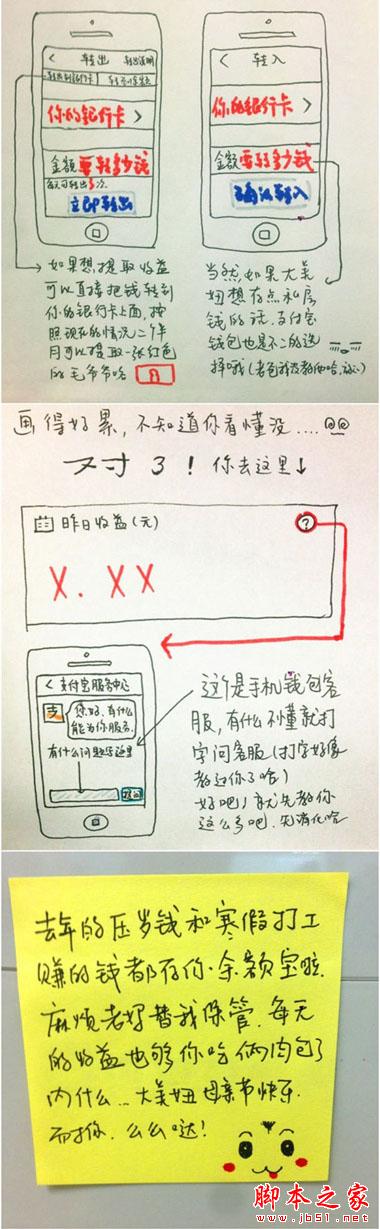 转出
转出说明
转出到银行卡
你的银行卡
金额 要转多少钱
每天可转出3次
立即转出
转入
你的银行卡
金额 要转多少钱
确认转入
如果想提取收益
可以直接把钱转到
你的银行卡上面,按
照现在的情况二个半
月可以提取一张红色
的毛爷爷哈
当然如果大美
妞想存点私房
钱的话,支付宝
钱包也是不二的选
择哦(老爸我没教你哈,
画得好累,不知道你看懂没....
对了!你去这里↓
昨日收益(元)
?
X.XX
支付宝服务中心
支
您好,有什么
能为你服务.
有什么问题点这里
提问
这个是手机钱包客
服,有什么不懂就打
字问客服(打字好像
教过你了哈)
好吧!就先教你
这么多吧.先消化哈
去年的压岁钱和寒假打工
赚的钱都存你余额宝啦.
麻烦老妈替我保管.每天
的收益也够你吃俩肉包了
内什么...大美妞母亲节快乐.
而撒你.么么哒!
脚本之家
www.jb51.net